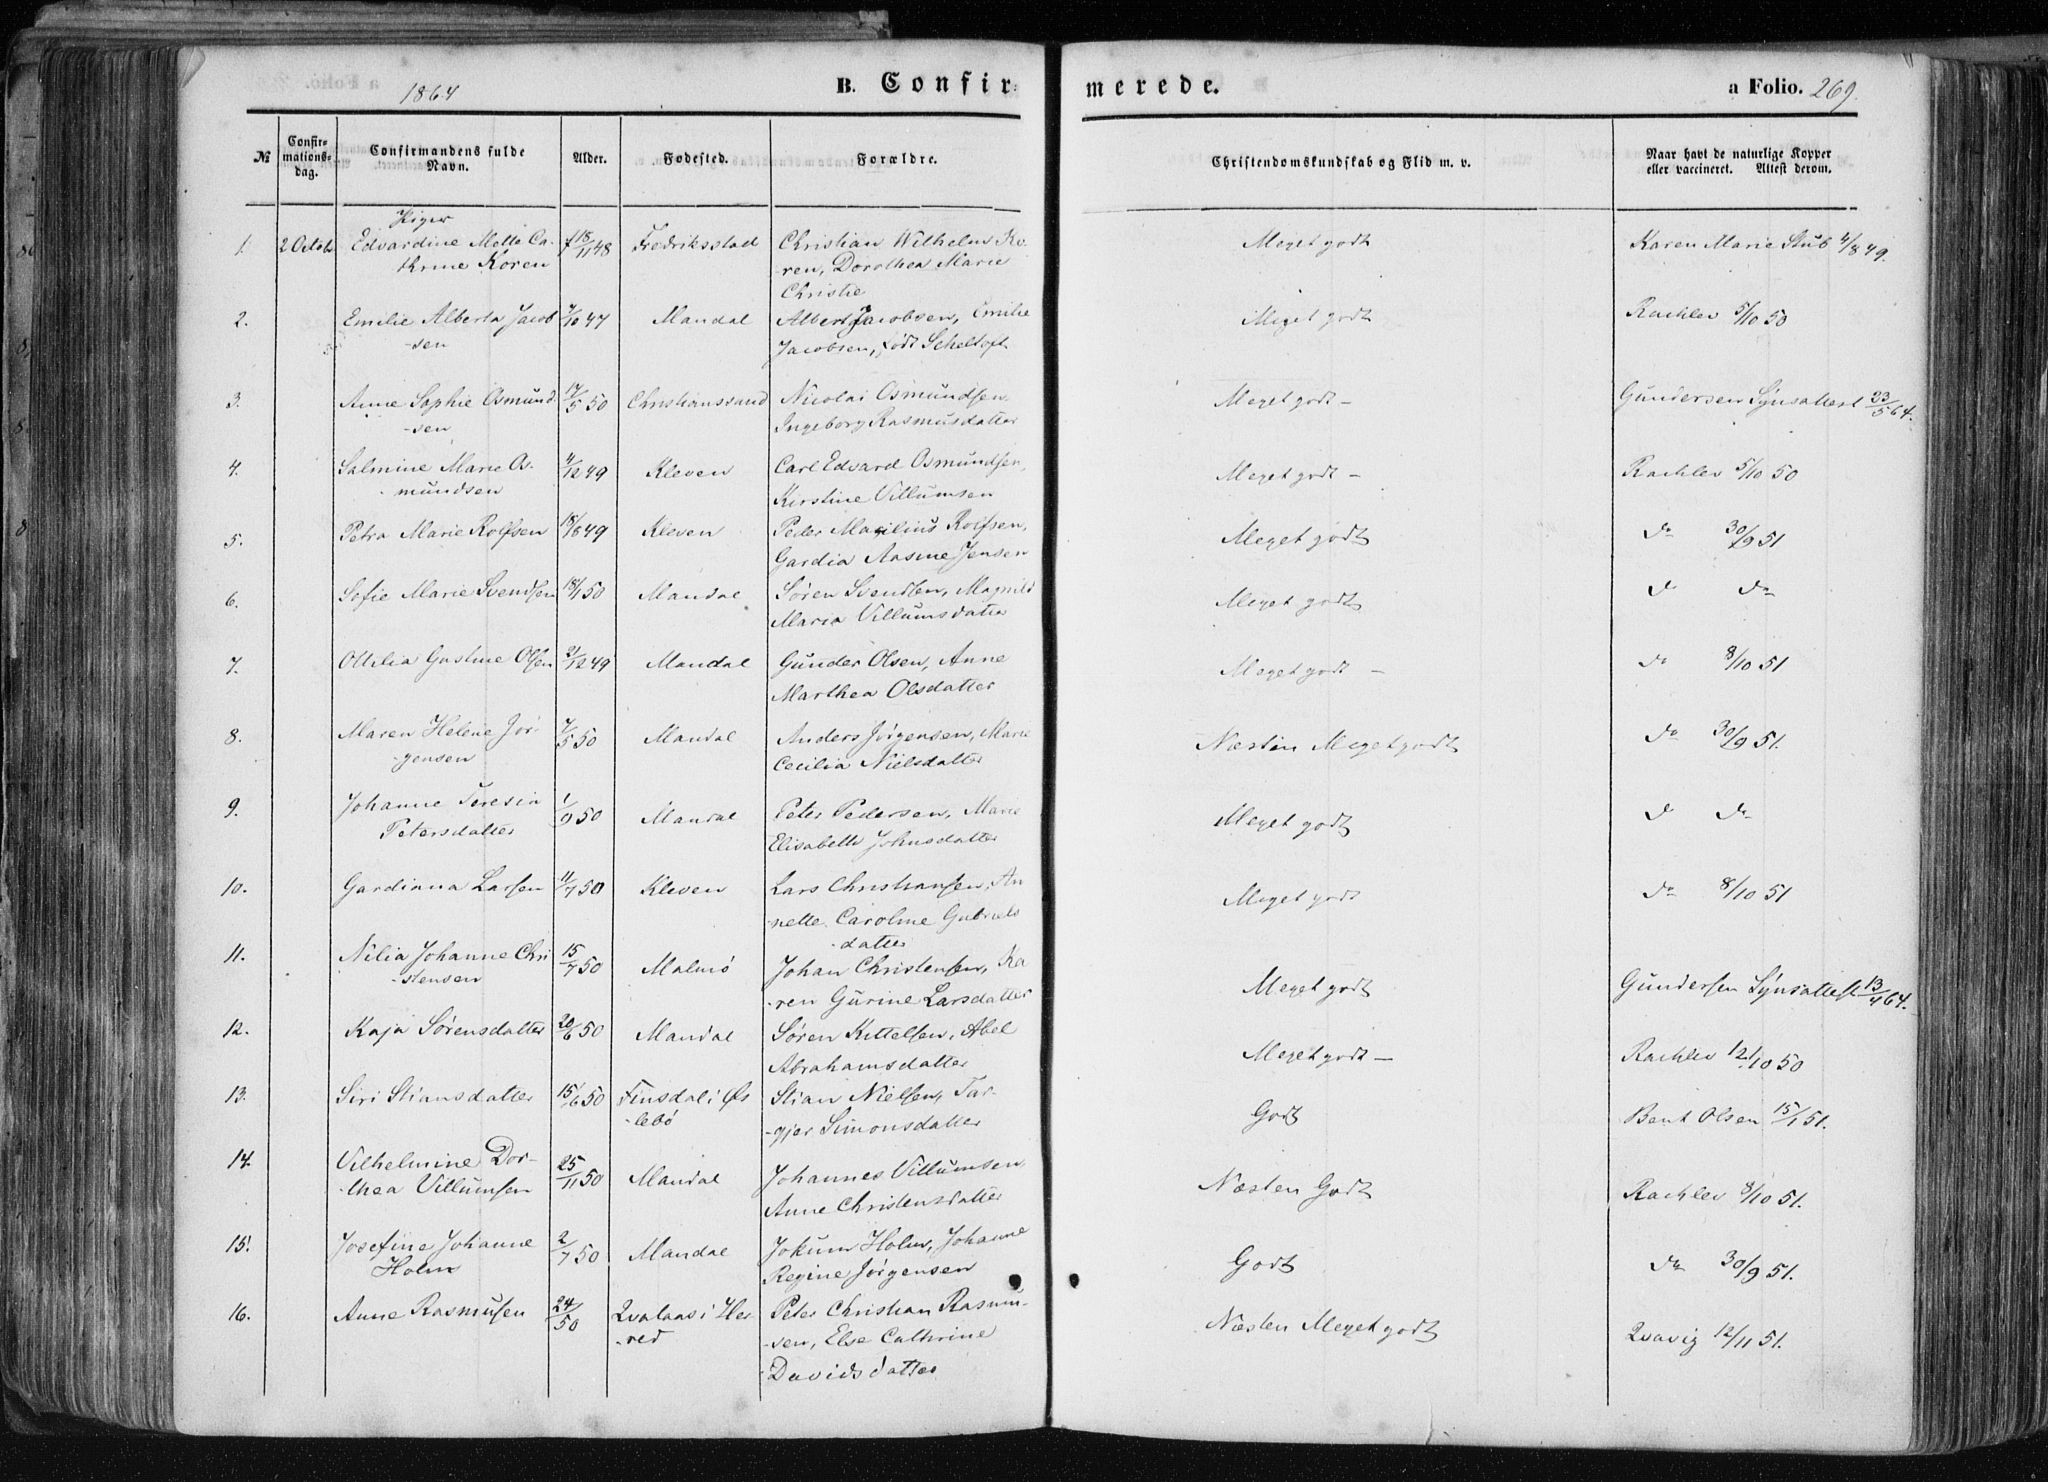 1864
B. Confir=
merede.
a Folio. 269.
№
Confir-
mations-
dag.
Confirmandens fulde
Navn.
Alder.
Fødested.
Forældre.
Christendomskundskab og Flid m. v.
Naar havt de naturlige Kopper
eller vaccineret. Attest derom.
Piger
1. 2 Octob. Edvardine Mette Ca- f 18/11 48 Fredriksstad Christian Wilhelm Ko- Meget godt Karen Marie Stub 4/8 49.
thrine Koren ren, Dorothea Marie
Christie
2. Emilie Alberta Jacob 7/10 47 Mandal Albert Jacobsen, Emilie Meget godt Rachlev 5/10 50
-sen Jacobsen, født Scheltoft
3. Anne Sophie Osmund 17/5 50 Christianssand Nicolai Osmundsen, Meget godt - Gundersen Synsattest 23/5 64.
-sen Ingeborg Rasmusdatter
4. Salmine Marie Os- 4/12 49 Kleven Carl Edvard Osmundsen, Meget godt - Rachlev 5/10 50
-mundsen Kirstine Villumsen
5. Petra Marie Rolfsen 18/6 49 Kleven Peder Marilius Rolfsen, Meget godt do 30/9 51
Gardia Aasine Jensen
6. Sofie Marie Svendsen 18/1 50 Mandal Søren Svendsen, Magnild Meget godt do do
Maria Villumsdatter
7. Ottilia Gustine Olsen 21/12 49 Mandal Gunder Olsen, Anne Meget godt - do 8/10 51
Marthea Olsdatter
8. Maren Helene Jør- 7/5 50 Mandal Anders Jørgensen, Marie Næsten Meget godt do 30/9 51.
-gensen Cecilia Nielsdatter
9. Johanne Teresia 1/9 50 Mandal Peter Pedersen, Marie Meget godt do do
Petersdatter Elisabeth Johnsdatter
10. Gardianna Larsen 11/7 50 Kleven Lars Christiansen, An Meget godt do 8/10 51
nette Caroline Gabriels
-datter
11. Nilia Johanne Chri 15/7 50 Malmø Johan Christensen, Ka Meget godt Gundersen Synsattest 13/4 64.
-stensen -ren Gurine Larsdatter
12. Kaja Sørensdatter 20/6 50 Mandal Søren Kittelsen, Abel Meget godt - Rachlev 12/10 50
Abrahamsdatter
13. Siri Stiansdatter 15/6 50 Finsdal i Øs Stian Nielsen, Tar- Godt Bent Olsen 15/1 51.
-lebø -gjer Simonsdatter
14. Vilhelmine Dor- 25/11 50 Mandal Johannes Villumsen Næsten Godt Rachlev 8/10 51.
-thea Villumsen Anne Christensdatter
15. Josefine Johanne 2/7 50 Mandal Jokum Holm, Johanne Godt do 30/9 51.
Holm Regine Jørgensen
16. Anne Rasmusen 24/50 Qvalaas i Her Peter Christian Rasmu- Næsten Meget godt Qvavig 12/11 51.
-red -sen, Else Cathrine
Davidsdatter